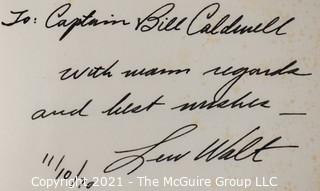 To: Captain Bill Caldwell
with warm regards
and best wishes —
Lew Walt
11/10/
Copyright 2021 - The McGuire Group LLC